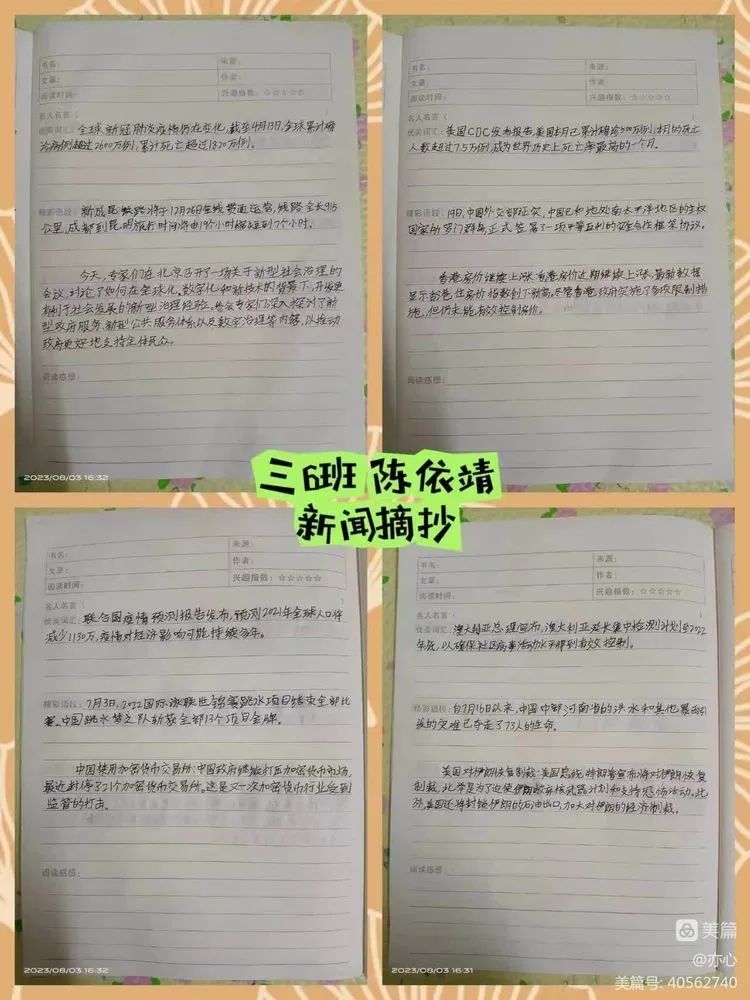 书名：
来源：
文章：
作者：
阅读时间：
兴趣指数：☆☆☆☆☆
名人名言（ ）
优美词汇：全球新冠肺炎疫情仍在变化，截至4月13日，全球累计确
诊病例超过2600万例，累计死亡超过1820万例。
精彩语段：新成昆铁路将于12月26日全线贯通运营，线路全长915
公里，成都到昆明旅行时间将由19个小时缩短到7个小时。
今天，专家们在北京召开了一场关于新型社会治理的
会议，讨论了如何在全球化、数字化和新技术的背景下，开发更
有利于社会发展的新型治理经验。与会专家们深入探讨了新
型政府服务、新型公共服务体系以及数字治理等内容，以推动
政府更好地支持全体民众。
阅读感想：
2023/08/03 16:32
书名：
来源：
文章：
作者
阅读时间：
兴趣指数：☆☆☆☆☆
名人名言（ ）
优美词汇：美国CDC发布报告，美国本月已累计确诊500万例，本月的死亡
人数超过7.5万例，成为世界历史上死亡率最高的一个月。
精彩语段：19日，中国外交部证实，中国已和地处南太平洋地区的主权
国家所罗门群岛正式签署了一项平等互利的安全合作框架协议。
香港房价继续上涨：香港房价近期继续上涨，最新数据
显示香港住房价指数创下新高，尽管香港政府实施了多项限制措
施，但仍未能有效控制房价。
阅读感想：
2023/08/03 16:32
三6班 陈依靖
新闻摘抄
书名：
来源：
文章：
作者：
阅读时间：
兴趣指数：☆☆☆☆☆
名人名言（ ）
优美词汇：联合国疫情预测报告发布，预测2021年全球人口将
减少1130万，疫情对经济影响可能持续多年。
精彩语段：7月3日，2022国际泳联世锦赛跳水项目结束全部比
赛。中国跳水梦之队斩获全部13个项目金牌。
中国禁用加密货币交易所：中国政府继续打压加密货币市场，
最近封停了21个加密货币交易所。这是又一次加密货币行业受到
监管的打击。
阅读感想：
2023/08/03 16:32
书名：
来源：
文章：
作者：
阅读时间：
兴趣指数：☆☆☆☆☆
名人名言（ ）
优美词汇：澳大利亚总理宣布，澳大利亚延长集中检测计划至2022
年底，以确保社区病毒活动水平得到有效控制。
精彩语段：自7月16日以来，中国中部河南省的洪水和其他暴雨引
发的灾难已夺走了73人的生命。
美国对伊朗恢复制裁：美国总统特朗普宣布将对伊朗恢复
制裁，此举是为了迫使伊朗放弃核武器计划和支持恐怖活动。此
外，美国还将封锁伊朗的石油出口，加大对伊朗的经济制裁。
阅读感想：
2023/08/03 16:31
美篇
@亦心
美篇号：40562740